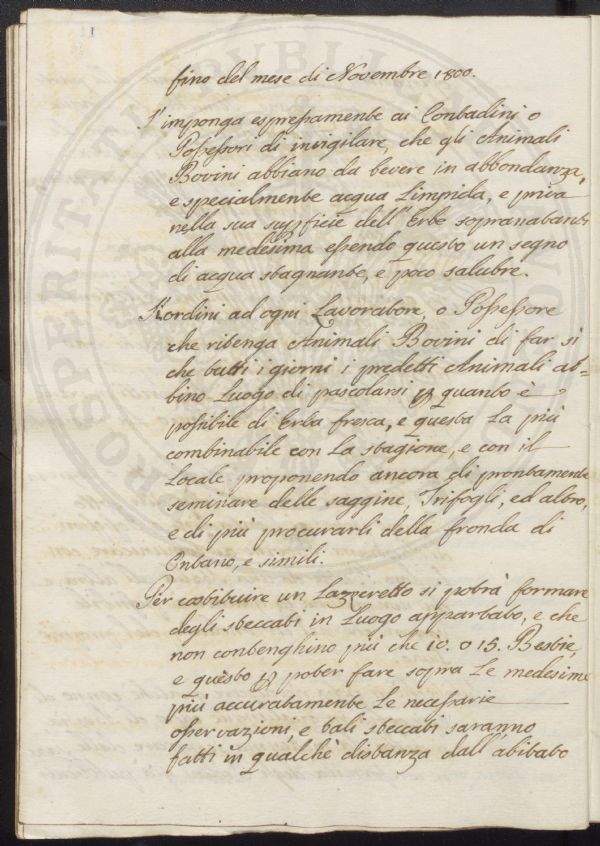 fino del mese di Novembre 1800.
S'imponga espressamente ai Contadini o
Possessori di invigilare, che gli Animali
Bovini abbiano da bevere in abbondanza,
e specialmente acqua Limpida, e priva
nella sua supficie dell'Erbe sopranatanti
alla medesima essendo questo un segno
di acqua stagnante, e poco salubre.
S'ordini ad ogni Lavoratore, o Possessore
che ritenga Animali Bovini di far sì
che tutti i giorni i predetti Animali ab=
bino Luogo di pascolarsi p quanto è
possibile di Erba fresca, e questa La più
combinabile con La stagione, e con il
Locale proponendo ancora di prontamente
seminare delle saggine, Trifogli, ed altro,
e di più procurarli della fronda di
Ontano, e simili.
Per costituire un Lazzeretto si potrà formare
degli steccati in Luogo appartato, e che
non contenghino più che 10. o 15. Bestie,
e questo p poter fare sopra Le medesime
più accuratamente Le necessarie
osservazioni, e tali steccati saranno
fatti in qualche distanza dall'abitato